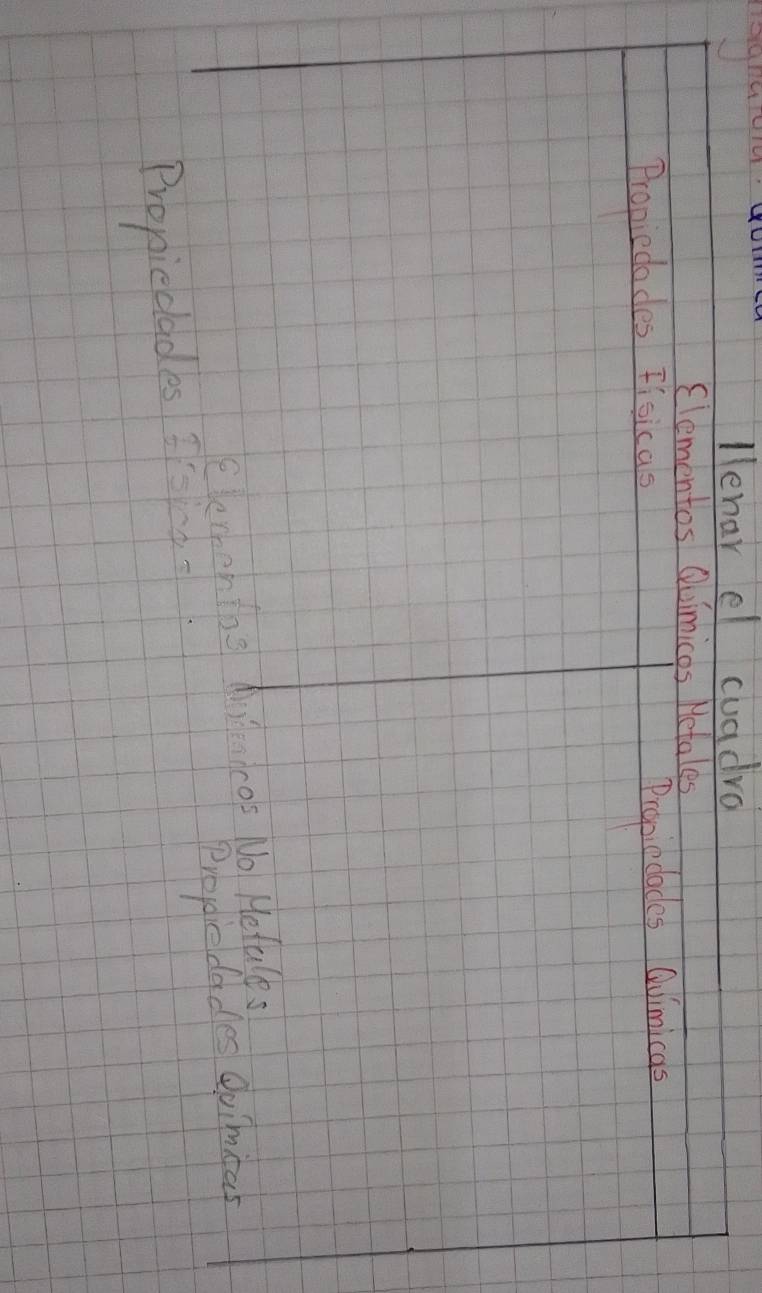 Química
llenar el cuadro
Elementos Químicos Metales
Propiedades Físicas Propiedades Químicas
Elementos Químicos No Metales
Propiedades Físicas Propiedades Químicas